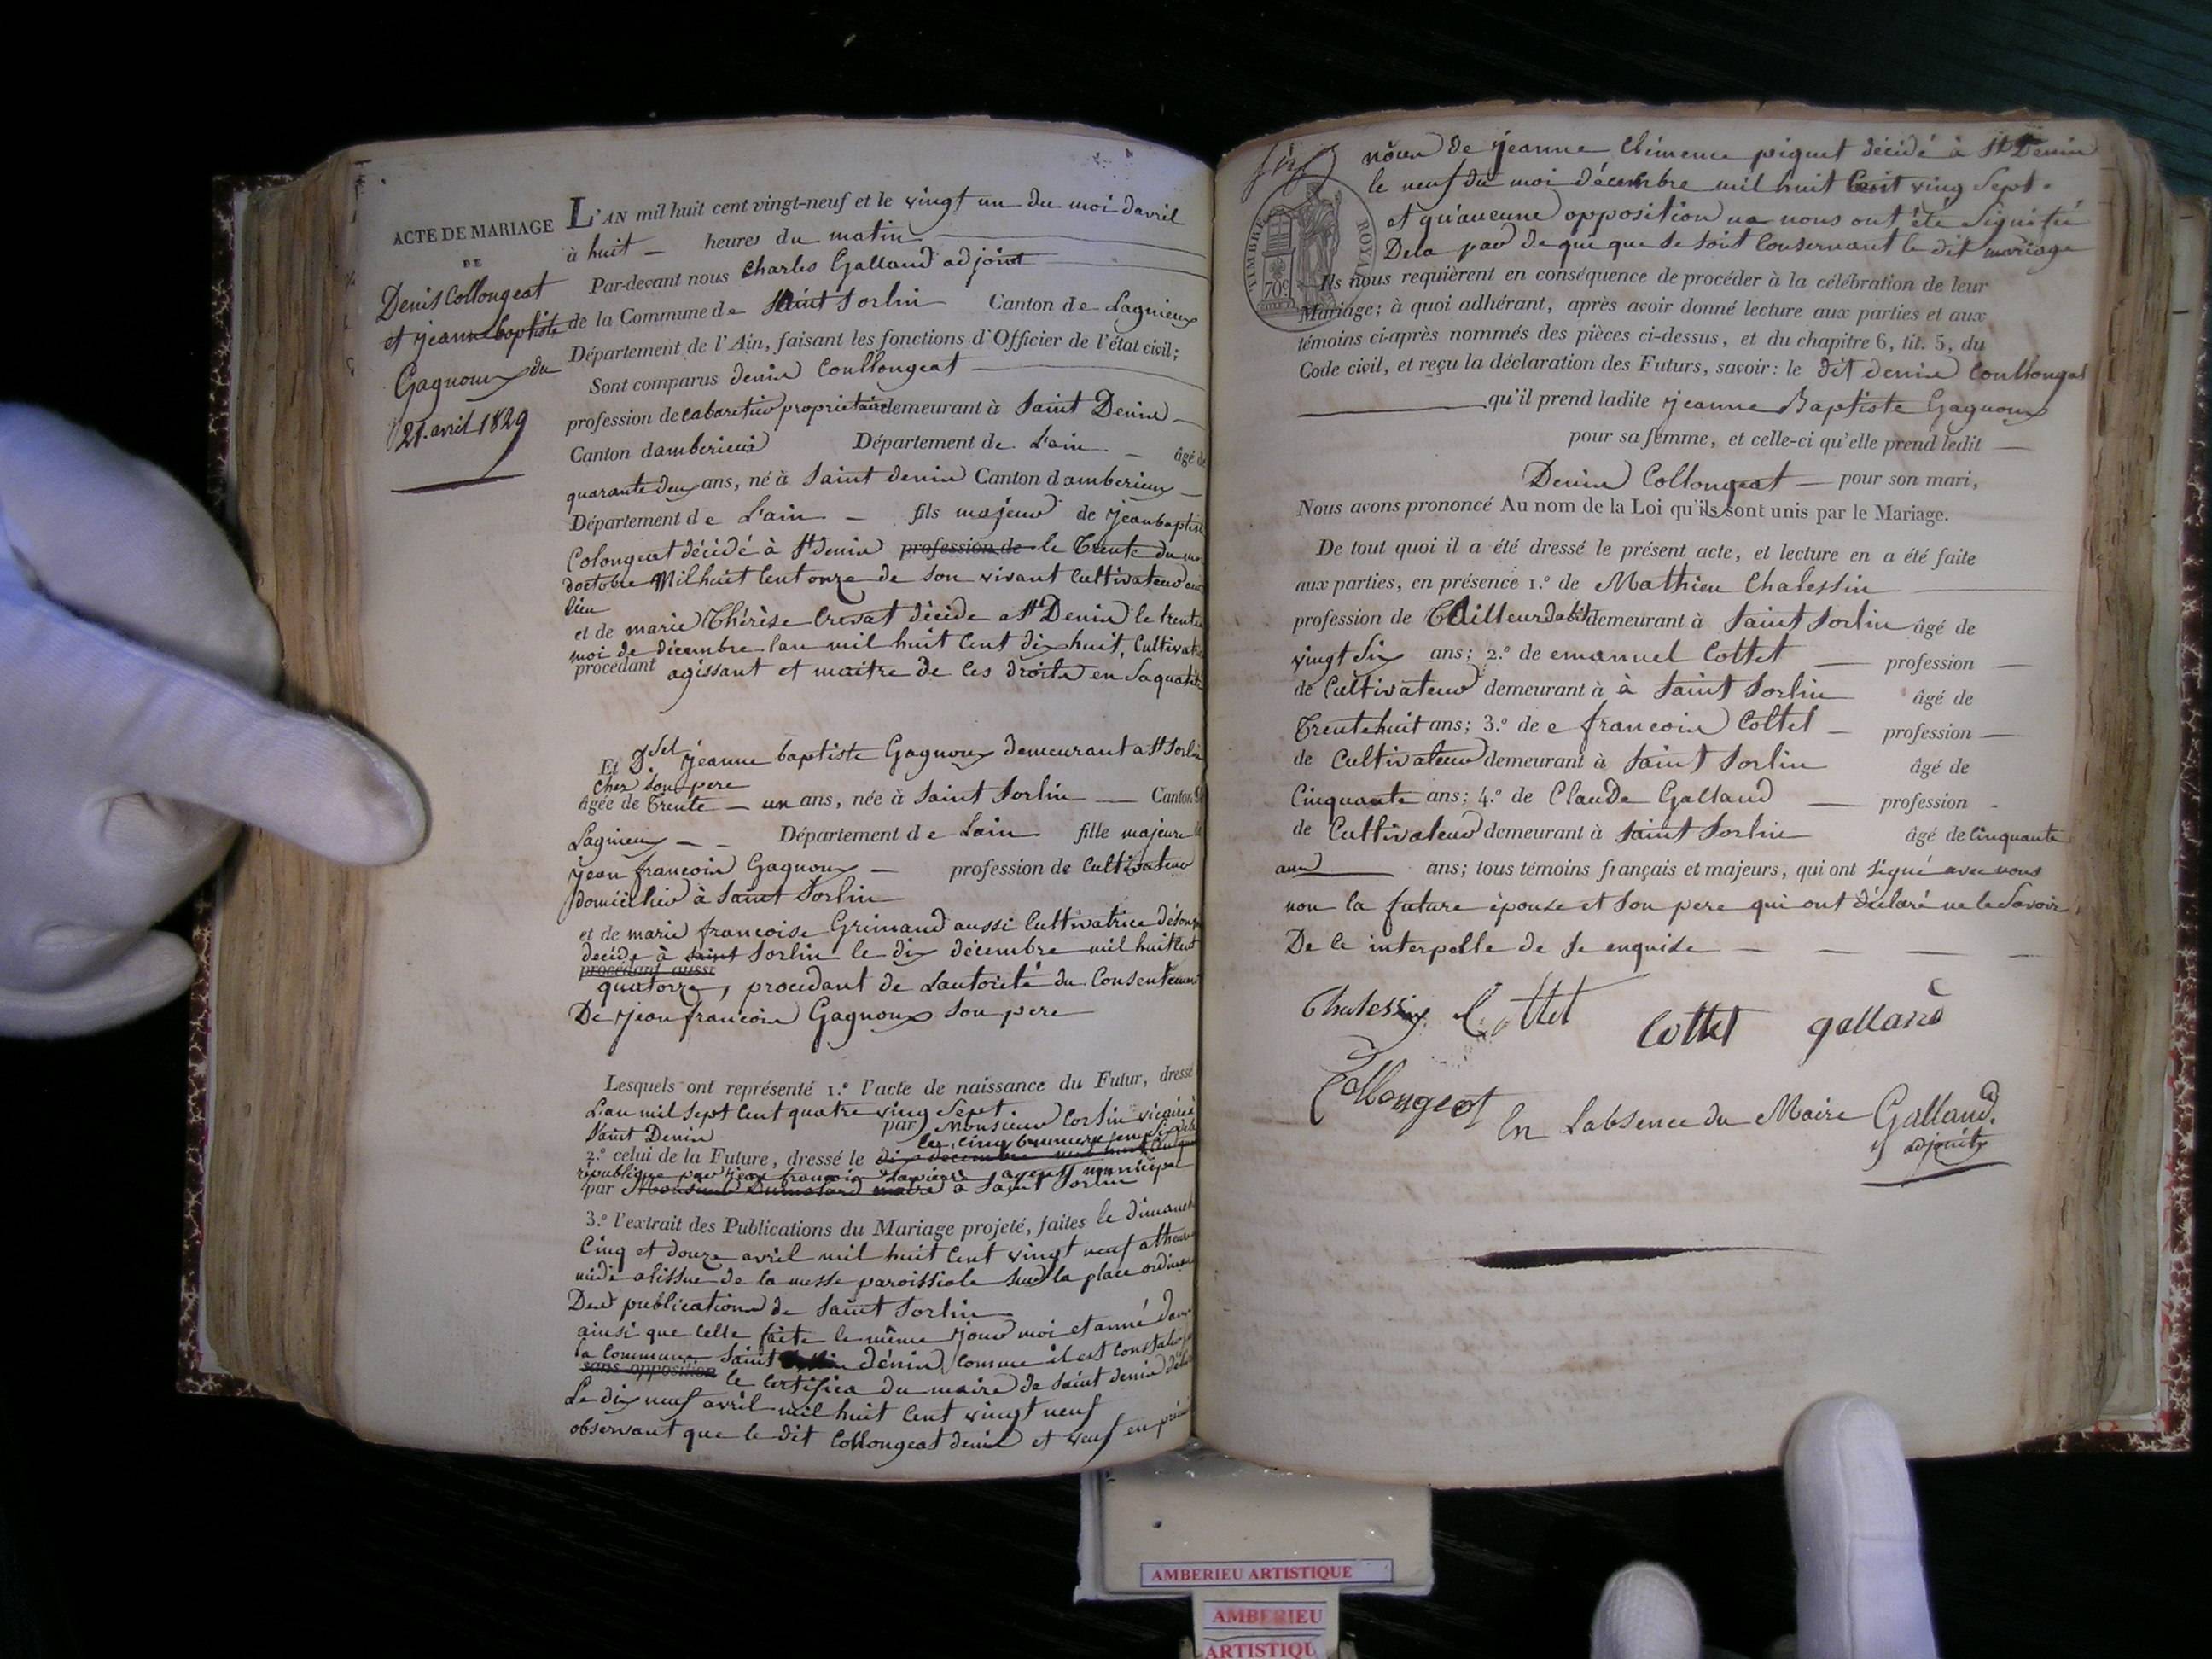 ACTE DE MARIAGE
DE
Denis Collongeat
et jeanne baptiste
Gagnoux du
21. avril 1829
L'AN mil huit cent vingt-neuf et le vingt un du moi davril
à huit heures du matin
Par-devant nous Charles Galland adjoint
de la Commune de Saint Sorlin Canton de Lagnieux
Département de l'Ain, faisant les fonctions d'Officier de l'état civil;
Sont comparus denis Coullongeat
profession de cabaretier propriétaire demeurant à Saint Denis
Canton damberieux Département de L'ain âgé de
quarante deux ans, né à Saint denis Canton damberieux
Département de L'ain fils majeur de Jean baptiste
Colongeat décidé à St denis profession de le Trente du moi
doctobre Mil huit Cent onze de son vivant Cultivateur au
lieu
et de marie Thérèse Cresat décide a St Denis le trente
moi de décembre lan mil huit Cent dix huit, Cultivatrice
procédant agissant et maitre de ces droits en Saqualité
Et Dsel. jeanne baptiste Gagnoux demeurant a St Sorlin
cher son pere
âgée de Trente un ans, née à Saint Sorlin Canton de
Lagnieux Département de Lain fille majeure de
jean francois Gagnoux profession de Cultivateur
domicilier à Saint Sorlin
et de marie francoise Grimaud aussi Cultivatrice
decide à Saint Sorlin le dix décembre mil huit Cent
procédant aussi
quatorze, procedant de Lautorité du Consentement
De jean francois Gagnoux Son pere
Lesquels ont représenté 1.º l'acte de naissance du Futur, dressé
L'an mil Sept Cent quatre ving Sept.
par Monsieur Corsin vicaire à
Saint Denis
les cinq brumere
2.º celui de la Future, dressé le dix decembre mil huit Cent
république par jean francois agent municipal
par Monsieur Dumolard maire à Saint Sorlin
3.º l'extrait des Publications du Mariage projeté, faites le dimanche
Cinq et douze avril mil huit Cent vingt neuf
midi alissue de la messe paroissiale Sur la place ordinaire
Des publications de Saint Sorlin
ainsi que Celle faite le même jour moi et anné dans
la Commune Saint dénis, Comme il est Constaté
sans opposition le Certifica du maire de Saint denis
Le dix neuf avril mil huit Cent vingt neuf
observant que le dit Collongeat denis et veuf en
TIMBRE ROYAL
70c
de jeanne Clémence piquet décidé à St Denis
le neuf du moi décembre mil huit Cent ving Sept.
et qu'aucune opposition na nous ont été Signifié
De la par de qui que se Soit Consernant le dit mariage
Ils nous requièrent en conséquence de procéder à la célébration de leur
Mariage; à quoi adhérant, après avoir donné lecture aux parties et aux
témoins ci-après nommés des pièces ci-dessus, et du chapitre 6, tit. 5, du
Code civil, et reçu la déclaration des Futurs, savoir: le dit denis Coullongeat
qu'il prend ladite jeanne Baptiste Gagnoux
pour sa femme, et celle-ci qu'elle prend ledit
Denis Collongeat pour son mari,
Nous avons prononcé Au nom de la Loi qu'ils sont unis par le Mariage.
De tout quoi il a été dressé le présent acte, et lecture en a été faite
aux parties, en présence 1.º de Mathieu Chalessin
profession de Tailleur demeurant à Saint Sorlin âgé de
vingt Six ans; 2.º de emanuel Cottet profession
de Cultivateur demeurant à à Saint Sorlin âgé de
Trente huit ans; 3.º de e francois Cottet profession
de Cultivateur demeurant à Saint Sorlin âgé de
Cinquante ans; 4.º de Claude Galland profession
de Cultivateur demeurant à Saint Sorlin âgé de Cinquante
ans; tous témoins français et majeurs, qui ont signé avec nous
non la future épouse et Son pere qui ont déclaré ne le Savoir,
De ce interpelle de se enquise
Chalessin Cottet Cottet galland
Collongeot
En Labsence du Maire Galland.
adjoint
AMBERIEU ARTISTIQUE
AMBERIEU
ARTISTIQU